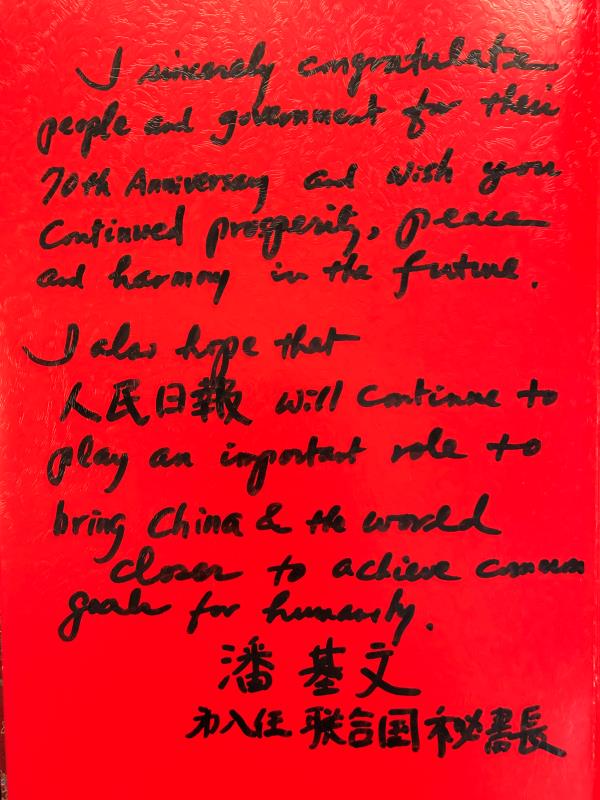 I sincerely congratulate
people and government for their
70th Anniversary and wish you
Continued prosperity, peace
and harmony in the future.
I also hope that
人民日報 will continue to
play an important role to
bring China & the world
closer to achieve common
goals for humanity.
潘基文
第八任 联合国 秘書長